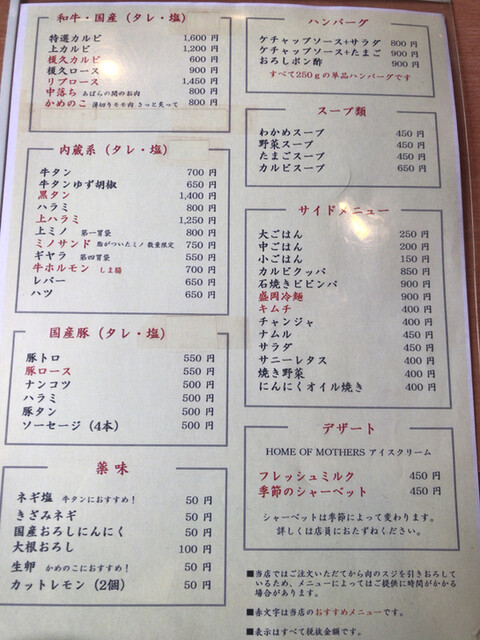 和牛・国産(タレ・塩)
特選カルビ 1,600 円
上カルビ 1,200 円
榎久カルビ 600 円
榎久ロース 900 円
リブロース 1,450 円
中落ち あばらの間のお肉 800 円
かめのこ 薄切りモモ肉 さっと炙って 800 円
内蔵系(タレ・塩)
牛タン 700 円
牛タンゆず胡椒 650 円
黒タン 1,400 円
ハラミ 800 円
上ハラミ 1,250 円
上ミノ 第一胃袋 800 円
ミノサンド 脂がついたミノ 数量限定 750 円
ギヤラ 第四胃袋 550 円
牛ホルモン しま腸 700 円
レバー 650 円
ハツ 650 円
国産豚(タレ・塩)
豚トロ 550 円
豚ロース 550 円
ナンコツ 500 円
ハラミ 500 円
豚タン 500 円
ソーセージ(4本) 500 円
薬味
ネギ塩 牛タンにおすすめ! 50 円
きざみネギ 50 円
国産おろしにんにく 50 円
大根おろし 100 円
生卵 かめのこにおすすめ! 50 円
カットレモン(2個) 50 円
ハンバーグ
ケチャップソース+サラダ 800 円
ケチャップソース+たまご 900 円
おろしポン酢 900 円
すべて250gの単品ハンバーグです
スープ類
わかめスープ 450 円
野菜スープ 450 円
たまごスープ 450 円
カルビスープ 650 円
サイドメニュー
大ごはん 250 円
中ごはん 200 円
小ごはん 150 円
カルビクッパ 850 円
石焼きビビンバ 900 円
盛岡冷麺 900 円
キムチ 400 円
チャンジャ 400 円
ナムル 400 円
サラダ 400 円
サニーレタス 400 円
焼き野菜 400 円
にんにくオイル焼き 400 円
デザート
HOME OF MOTHERS アイスクリーム
フレッシュミルク 450 円
季節のシャーベット 450 円
シャーベットは季節によって変わります。
詳しくは店員におたずねください。
■当店ではご注文いただてから肉のスジを引きおろして
いるため、メニューによってはご提供に時間がかかる
場合があります。
■赤文字は当店のおすすめメニューです。
■表示はすべて税抜金額です。